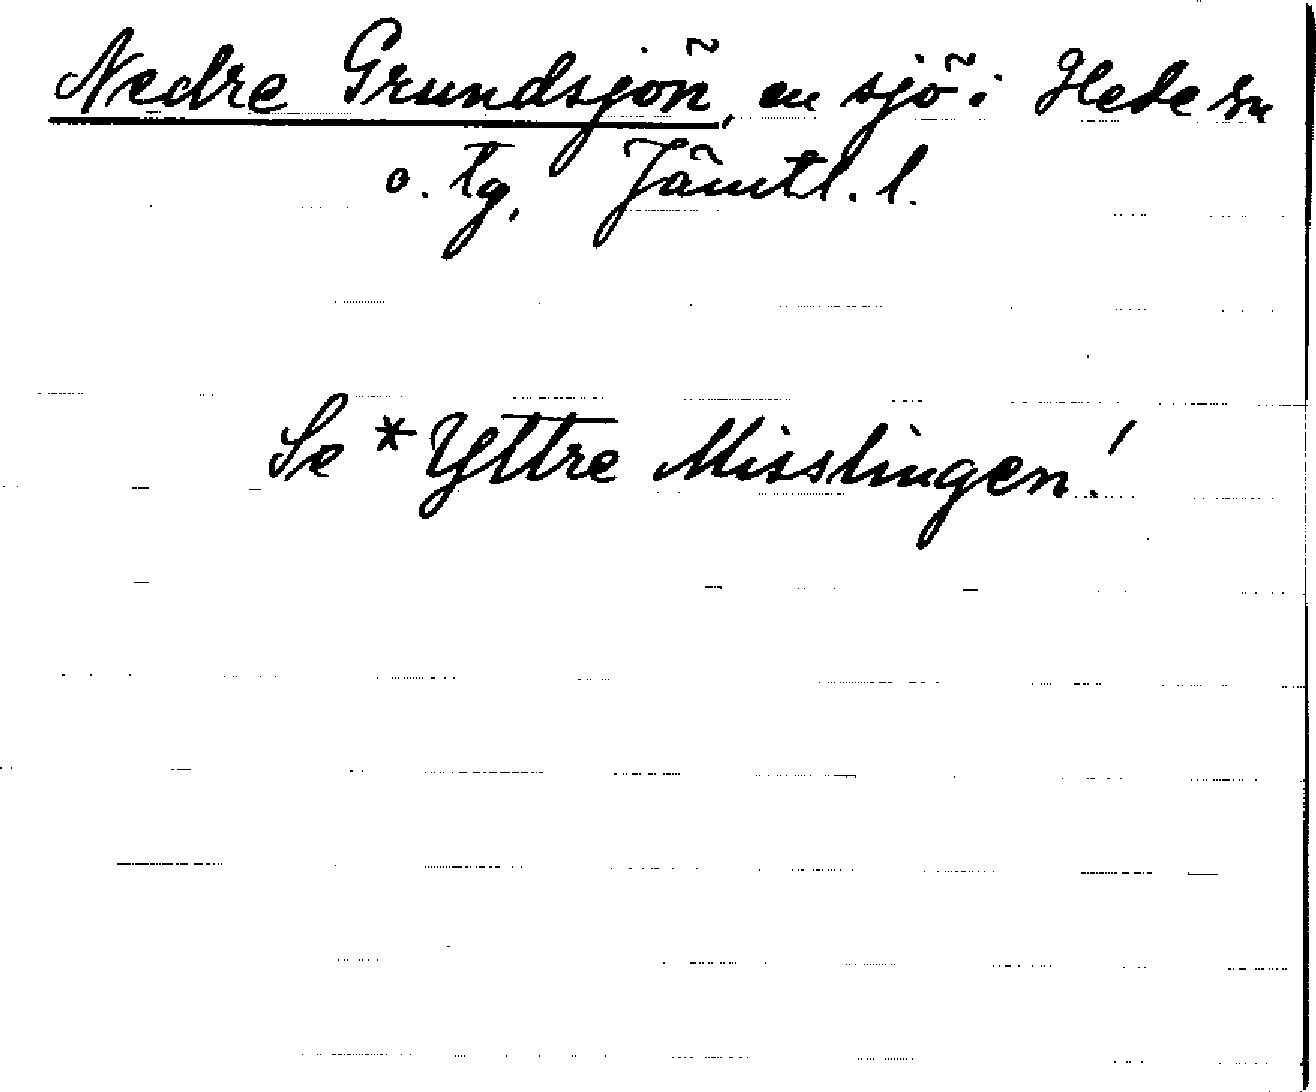 Nedre Grundsjön, en sjö i Hede sn
o. tg, Jämtl. l.
Se *Yttre Misslingen!